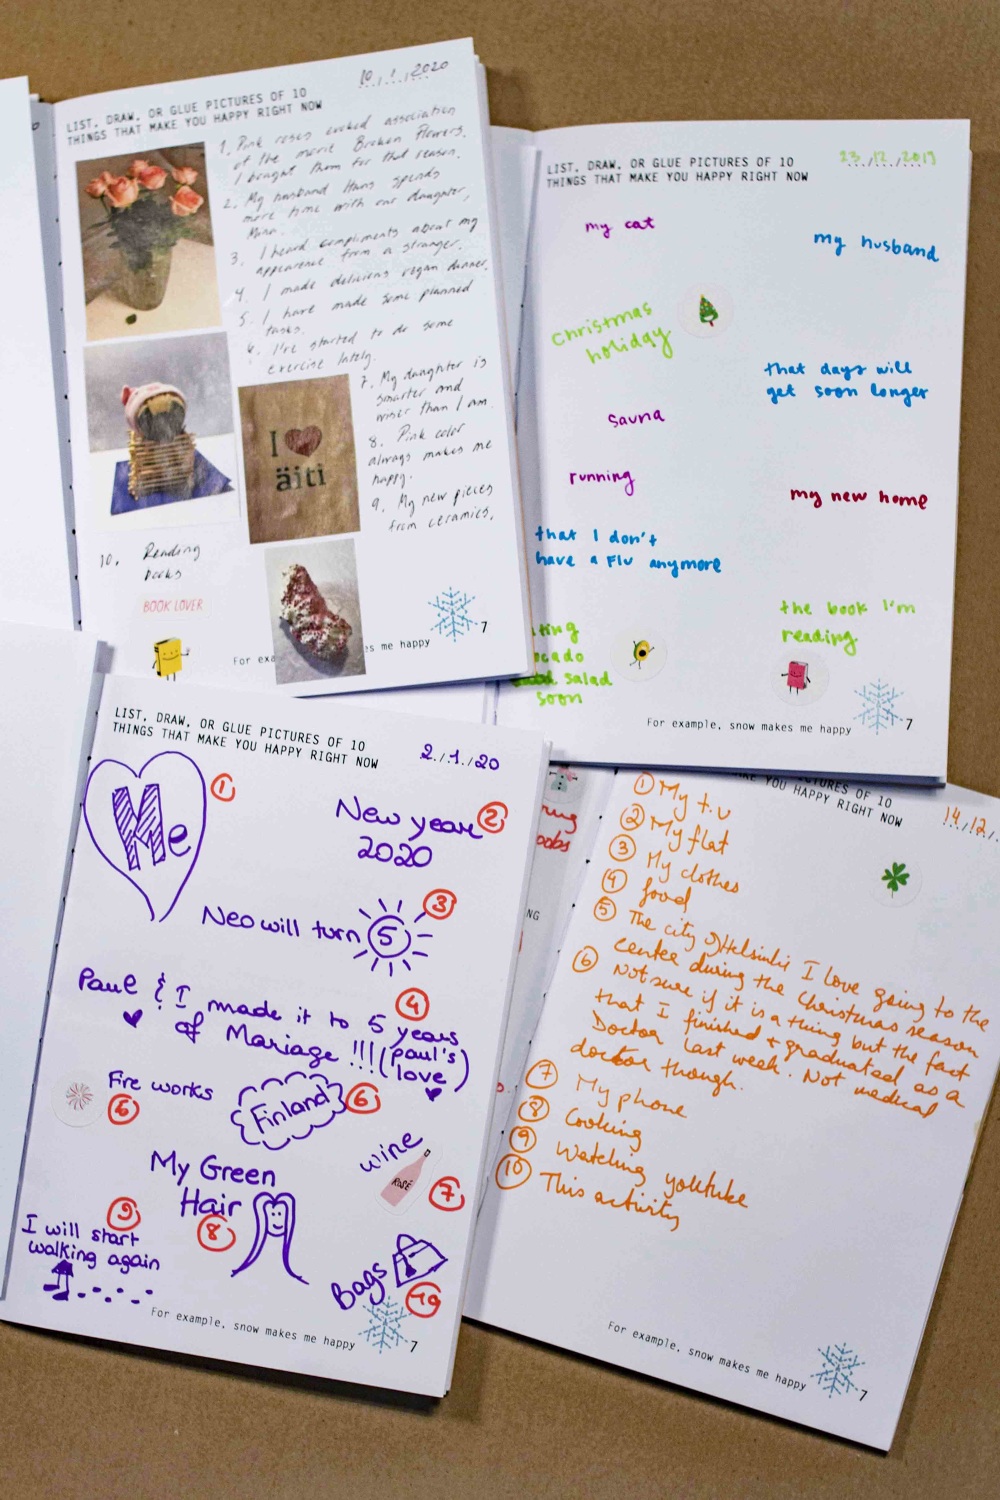 10.1.2020
LIST, DRAW, OR GLUE PICTURES OF 10
THINGS THAT MAKE YOU HAPPY RIGHT NOW
1. Pink roses evoked association
of the movie Broken Flowers.
I bought them for that reason.
2. My husband Hans spends
more time with our daughter,
3. I heard compliments about my
appearence from a stranger.
4. I made delicious vegan dinner.
5. I have made some planned
tasks.
6. I've started to do some
exercise lately.
7. My daughter is
smarter and
wiser than I am.
8. Pink color
always makes me
happy.
9. My new pieces
from ceramics.
I
äiti
10. Reading
books
BOOK LOVER
For exa
es me happy
7
23/12/2019
LIST, DRAW, OR GLUE PICTURES OF 10
THINGS THAT MAKE YOU HAPPY RIGHT NOW
my cat
my husband
Christmas
holiday
that days will
get soon longer
sauna
running
my new home
that I don't
have a Flu anymore
the book I'm
reading
ting
ocado
salad
soon
For example, snow makes me happy
7
LIST, DRAW, OR GLUE PICTURES OF 10
THINGS THAT MAKE YOU HAPPY RIGHT NOW
2./1./20
Me
1
New year
2020
2
Neo will turn 5
3
Paul & I made it to 5 years
of Mariage !!! (Paul's
love)
4
Fire works
Finland
6
wine
ROSÉ
7
My Green
Hair
8
9
I will start
walking again
Bags
10
For example, snow makes me happy
7
ING
CTURES OF 10
MAKE YOU HAPPY RIGHT NOW
14./12.
1 My t.v
2 My flat
3 My clothes
4 food
5 The city of Helsinki I love going to the
centee during the Christmas season
6 Not sure if it is a thing but the fact
that I finished & graduated as a
Doctor last week. Not medical
doctor though.
7 My phone
8 Cooking
9 Watching youtube
10 This activity
For example, snow makes me happy
7